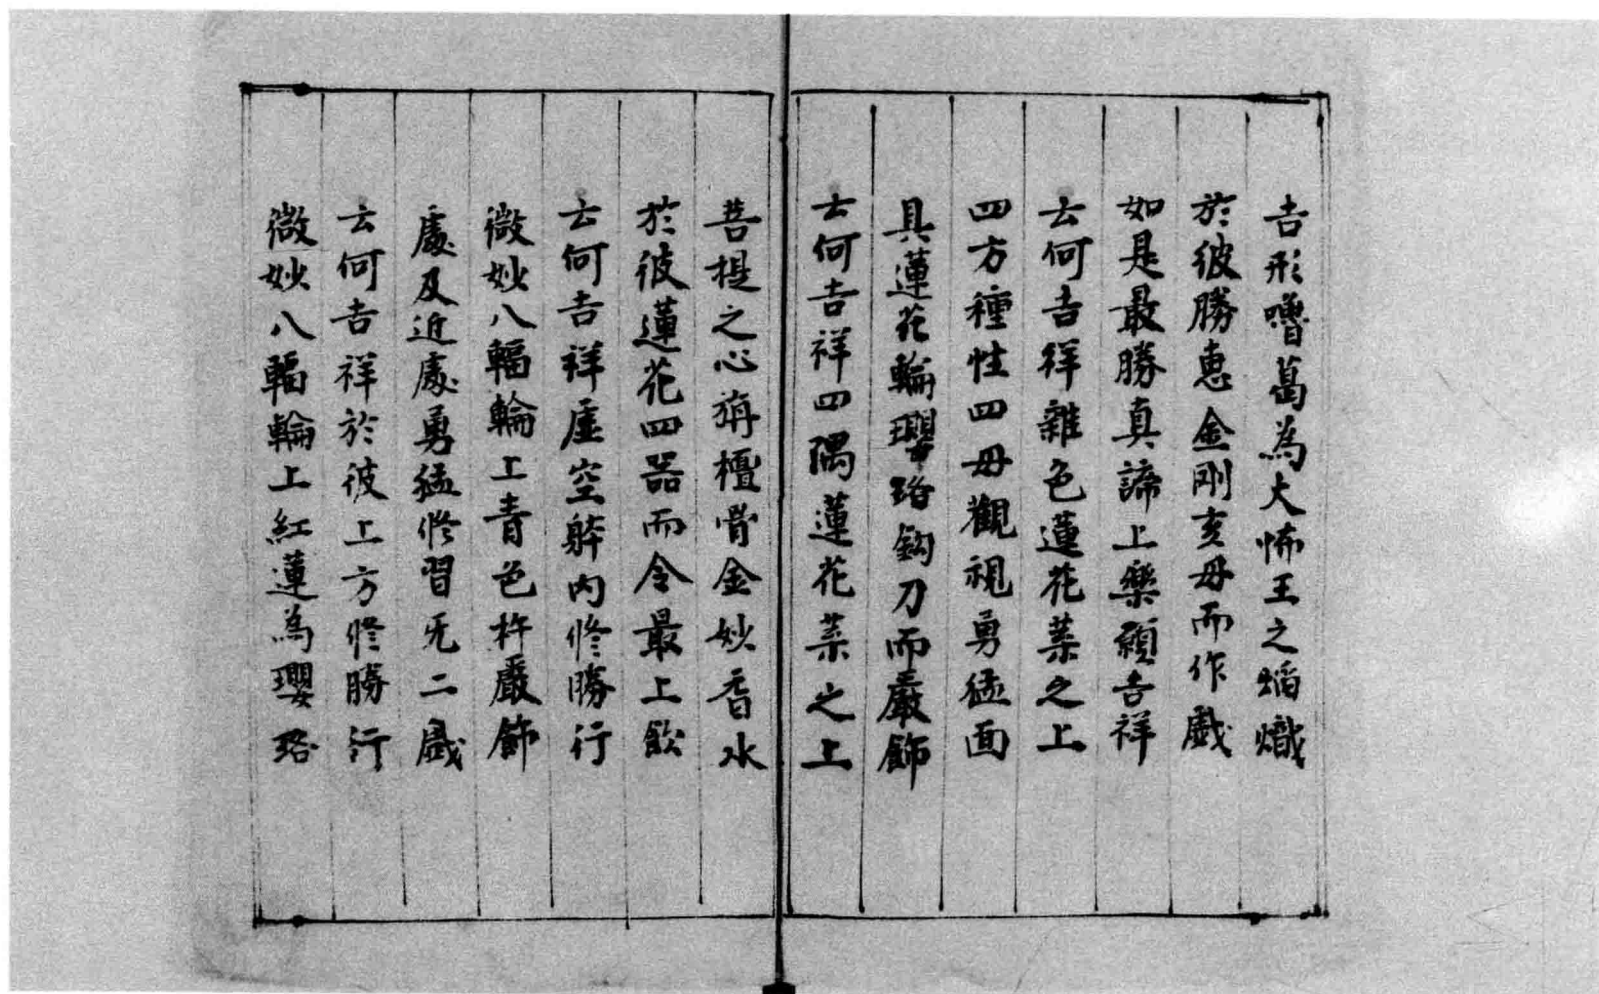 吉形嚕葛為大怖王之熖熾
於彼勝惠金剛亥毋而作戲
如是最勝真諦上樂願吉祥
云何吉祥雜色蓮花蘂之上
四方種性四毋觀視勇猛面
具蓮花輪瓔珞鈎刀而嚴飾
云何吉祥四隅蓮花蘂之上
菩提之心旃檀骨金妙香水
於彼蓮花四器而令最上飲
云何吉祥虛空躰內修勝行
微妙八輻輪上青色杵嚴飾
處及近處勇猛修習旡二戲
云何吉祥於彼上方修勝行
微妙八輻輪上紅蓮為瓔珞